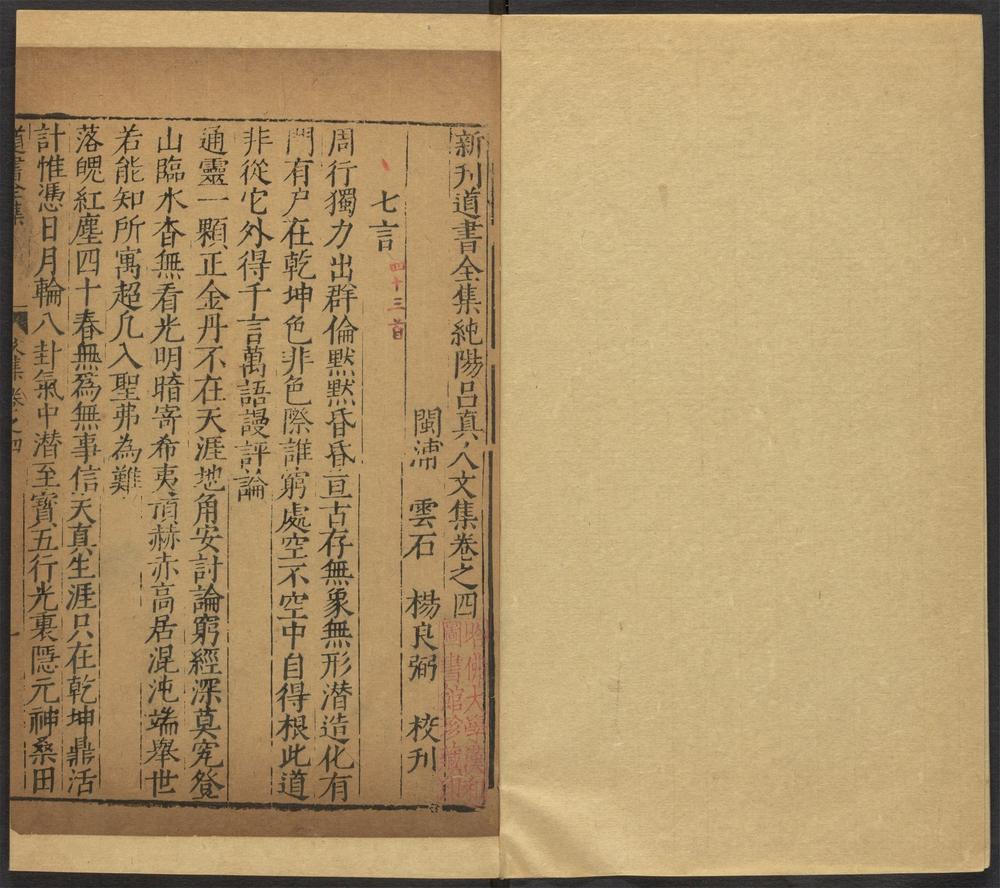 新刋道書全集純陽呂真人文集卷之四
閩浦　雲石　楊良弼　校刋
哈佛大學漢和
圖書館珍藏印
七言
四十三首
周行獨力出群倫默默昏昏亘古存無象無形潛造化有
門有户在乾坤色非色際誰窮處空不空中自得根此道
非從它外得千言萬語謾評論
通靈一顆正金丹不在天涯地角安討論窮經深莫究登
山臨水杳無看光明暗寄希夷頂赫赤高居混沌端舉世
若能知所寓超凢入聖弗為難
落魄紅塵四十春無為無事信天真生涯只在乾坤鼎活
計惟憑日月輪八卦氣中潛至寳五行光裏隱元神桑田
道書全集
集卷之四
一